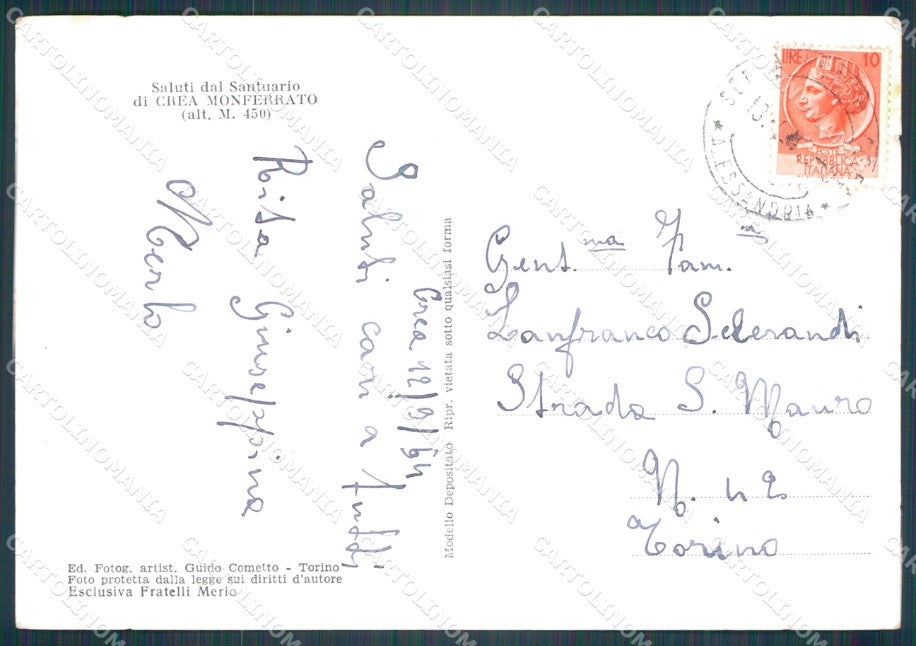 Saluti dal Santuario
di CREA MONFERRATO
(alt. M. 450)
Crea 12/9/64
Saluti cari a tutti
Risa Giuseppina
Merlo
Modello Depositato Ripr. vietata sotto qualsiasi forma
LIRE 10
POSTE
REPUBBLICA
ITALIANA
ALESSANDRIA
Gent.ma Fam.
Lanfranco Selerandi
Strada S. Mauro
N. 42
Torino
Ed. Fotog. artist. Guido Cometto - Torino
Foto protetta dalla legge sui diritti d'autore
Esclusiva Fratelli Merlo
CARTOLINOMANIA